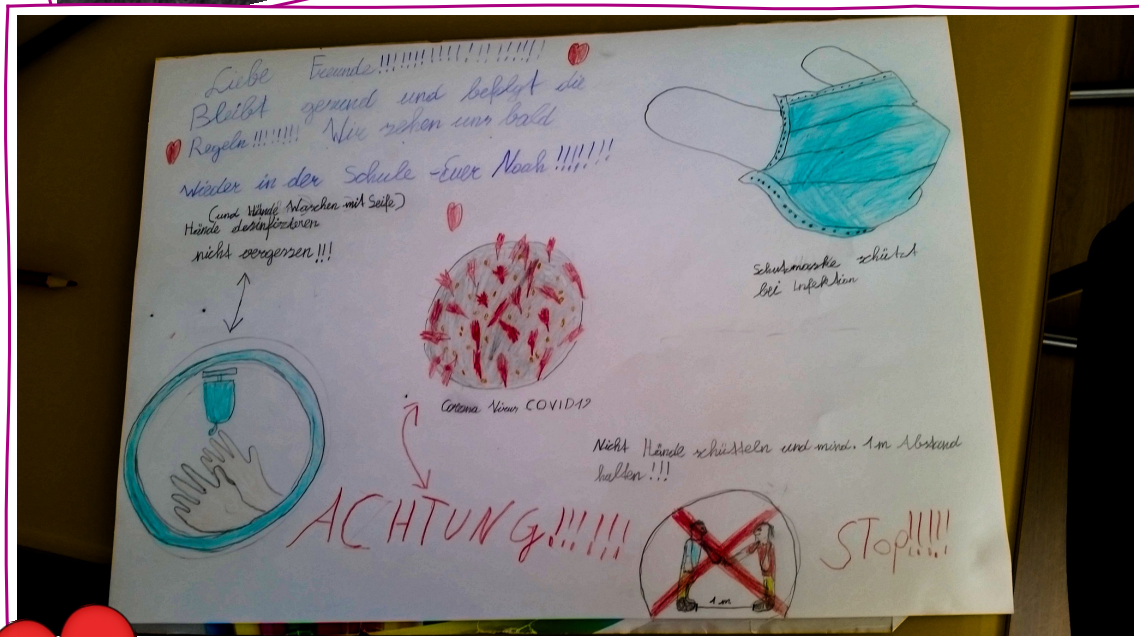 Liebe Freunde!!!!!!!!!!!!!!!!!!
Bleibt gesund und befolgt die
Regeln!!!!!!! Wir sehen uns bald
wieder in der Schule - Euer Noah!!!!!!!
(und Hände Waschen mit Seife)
Hände desinfizieren
nicht vergessen!!!
Schutzmaske schützt
bei Infektion
Corona Virus COVID19
Nicht Hände schütteln und mind. 1m Abstand
halten!!!
ACHTUNG!!!!!!
STOP!!!!!
1m